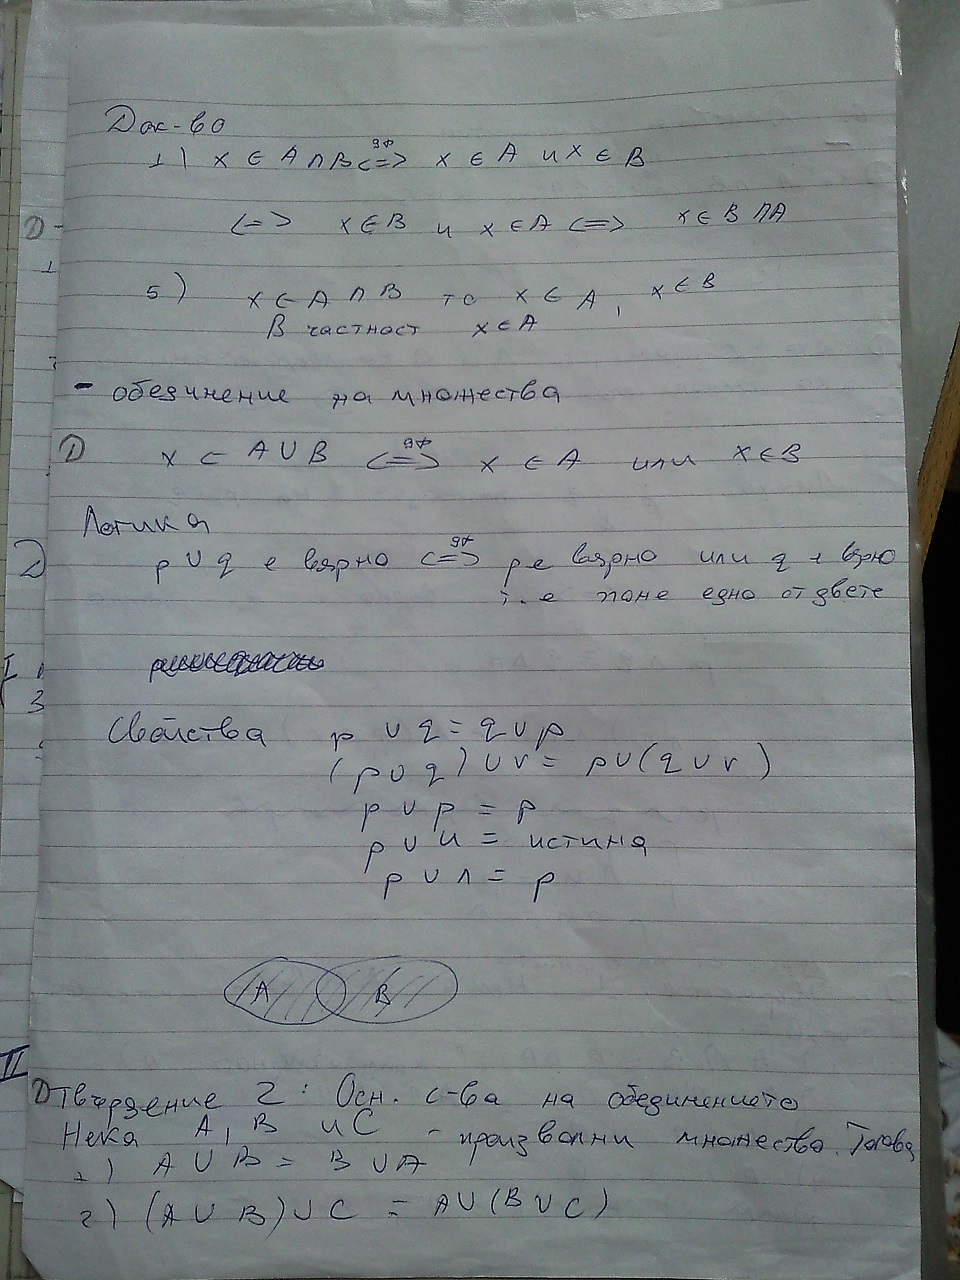 Док-во
1) x ∈ A ∩ B <=> дф x ∈ A и x ∈ B
<=> x ∈ B и x ∈ A <=> x ∈ B ∩ A
5) x ∈ A ∩ B то x ∈ A, x ∈ B
В частност x ∈ A
- обединение на множества
D x ∈ A ∪ B <=> дф x ∈ A или x ∈ B
Логика
D p ∪ q е вярно <=> дф p е вярно или q е вярно
т.е поне едно от двете
Свойства p ∪ q = q ∪ p
(p ∪ q) ∪ r = p ∪ (q ∪ r)
p ∪ p = p
p ∪ и = истина
p ∪ л = p
A B
Твърдение 2: Осн. с-ва на обединението
Нека A, B и C - произволни множества. Тогава
1) A ∪ B = B ∪ A
2) (A ∪ B) ∪ C = A ∪ (B ∪ C)